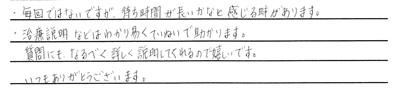 ・毎回ではないですが、待ち時間が長いかなと感じる時があります。
・治療説明などはわかり易くていねいで助かります。
質問にも、なるべく詳しく説明してくれるので嬉しいです。
いつもありがとうございます。